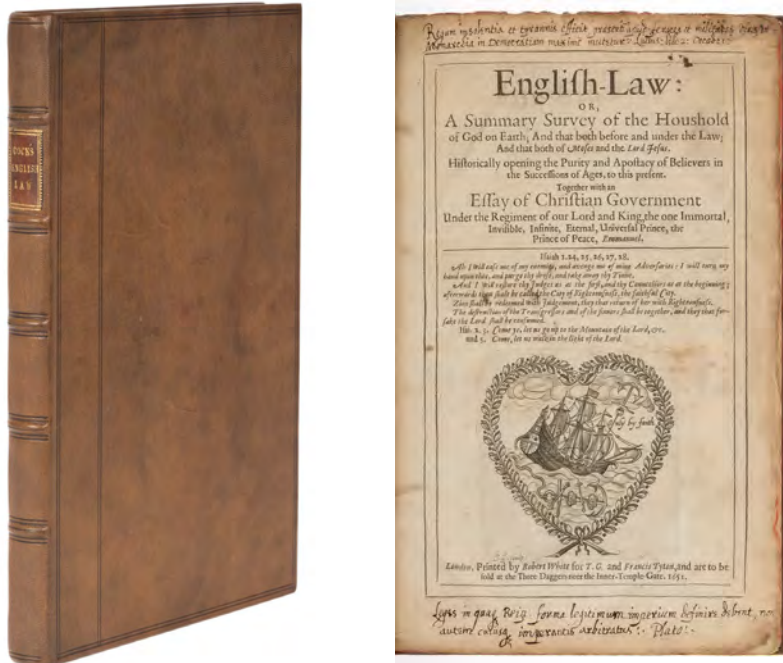 COCK'S
ENGLISH
LAW
et tyrannis efficit
Monarchia in Democratiam maxime mutetur
Engliſh-Law:
OR,
A Summary Survey of the Houſhold
of God on Earth; And that both before and under the Law;
And that both of Moſes and the Lord Jeſus.
Hiſtorically opening the Purity and Apoſtacy of Believers in
the Succeſſions of Ages, to this preſent.
Together with an
Eſſay of Chriſtian Government
Under the Regiment of our Lord and King, the one Immortal,
Inviſible, Infinite, Eternal, Univerſal Prince, the
Prince of Peace, Emmanuel.
Iſaiah 1.24, 25, 26, 27, 28.
Ah! I will eaſe me of my enemies, and avenge me of mine Adverſaries: I will turn my
hand upon thee, and purge thy droſs, and take away thy Tinne.
And I will reſtore thy Judges as at the firſt, and thy Counſellors as at the beginning;
afterwards thou ſhalt be called the City of Righteouſneſs, the faithful City.
Zion ſhall be redeemed with Judgement, they that return of her with Righteouſneſs.
The deſtruction of the Tranſgreſſors and of the ſinners ſhall be together, and they that for-
ſake the Lord ſhall be conſumed.
Come ye, let us go up to the Mountain of the Lord, &c.
and 5. Come, let us walk in the light of the Lord.
by faith
London, Printed by Robert White for T. G. and Francis Tyton, and are to be
ſold at the Three Daggers neer the Inner-Temple-Gate. 1651.
Leges in quaq Reip: forma legitimum imperium definire debent, non
autem cujusq imperantis arbitratus:- Plato:-